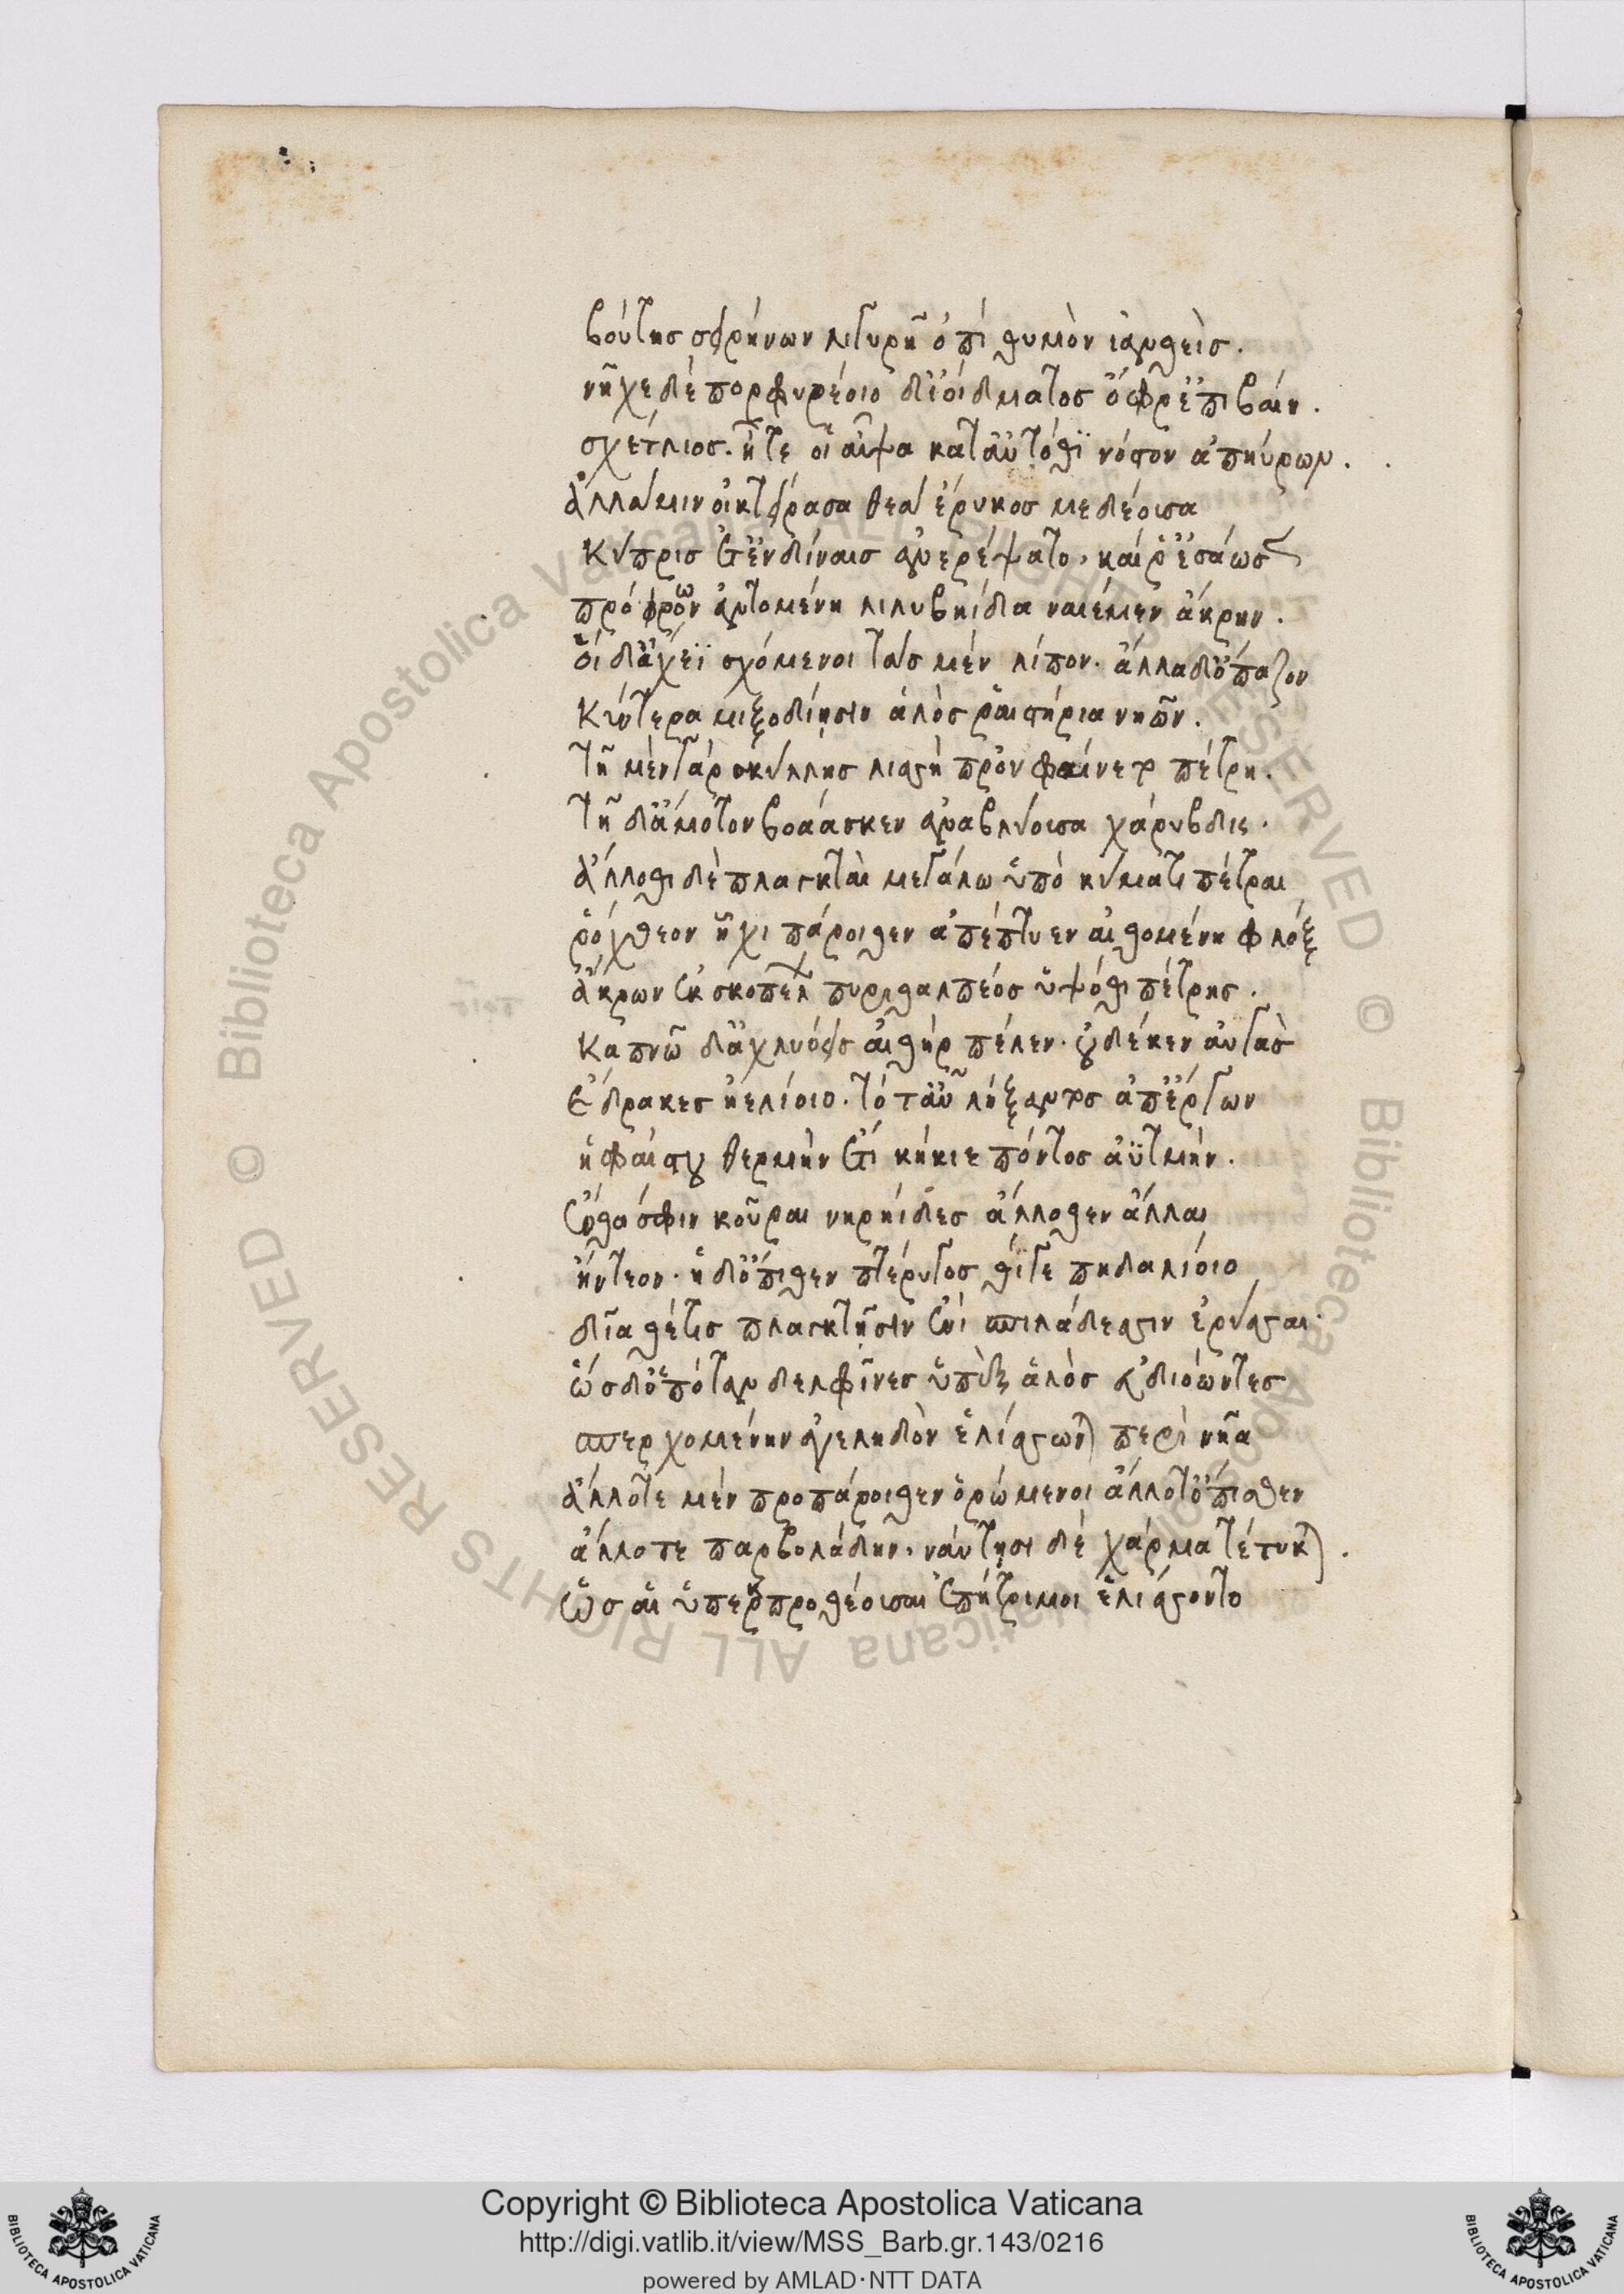 βούτης σειρήνων λιγυρῆ ὀπὶ θυμὸν ἰανθεὶς.
νῆχε δὲ πορφυρέοιο δι' οἴδματος ὄφρ' ἐπιβαίη.
σχέτλιος. ἦ τέ οἱ αἶψα κατ' αὐτόθι νόστον ἀπηύρων.
ἀλλά μιν οἰκτείρασα θεὰ ἔρυκος μεδέουσα
Κύπρις ἔτ' ἐν δίναις ἀνερέψατο, καί ῥ' ἐσάωσεν
πρόφρων ἀντομένη λιλυβηίδα ναιέμεν ἄκρην.
οἱ δ' ἄχεϊ σχόμενοι τὰς μὲν λίπον. ἄλλα δ' ὄπαζον
Κύντερα μιξοδίῃσιν ἁλὸς ῥαιστήρια νηῶν.
Τῇ μὲν γὰρ σκύλλης λισσὴ προὐφαίνετο πέτρη.
Τῇ δ' ἄμοτον βοάασκεν ἀναβλύουσα χάρυβδις.
ἄλλοθι δὲ πλαγκταὶ μεγάλῳ ὑπὸ κύματι πέτραι
ῥόχθεον ἧχι πάροιθεν ἀπέπτυεν αἰθομένη φλὸξ
ἄκρων ἐκ σκοπέλων πυριθαλπέος ὑψόθι πέτρης.
Καπνῷ δ' ἀχλυόεις αἰθὴρ πέλεν. οὐδέ κεν αὐγὰς
ἔδρακες ἠελίοιο. τότ' αὖ λήξαντος ἀπ' ἔργων
ἡφαίστου θερμὴν ἔτι κήκιε πόντος ἀϋτμήν.
ἔνθα σφιν κοῦραι νηρηίδες ἄλλοθεν ἄλλαι
ἤντεον. ἡ δ' ὄπιθεν πτέρυγος θίγε πηδαλίοιο
δῖα θέτις πλαγκτῇσιν ἐνὶ σπιλάδεσσιν ἐρύσσαι.
ὡς δ' ὁπόταν δελφῖνες ὑπὲξ ἁλὸς εὐδιόωντες
σπερχομένην ἀγεληδὸν ἑλίσσωνται περὶ νῆα
ἄλλοτε μὲν προπάροιθεν ὁρώμενοι ἄλλοτ' ὄπισθεν
ἄλλοτε παρβολάδην. ναύτῃσι δὲ χάρμα τέτυκται.
ὣς αἱ ὑπεκπροθέουσαι ἐπήτριμοι ἑλίσσοντο
Copyright © Biblioteca Apostolica Vaticana
http://digi.vatlib.it/view/MSS_Barb.gr.143/0216
powered by AMLAD·NTT DATA